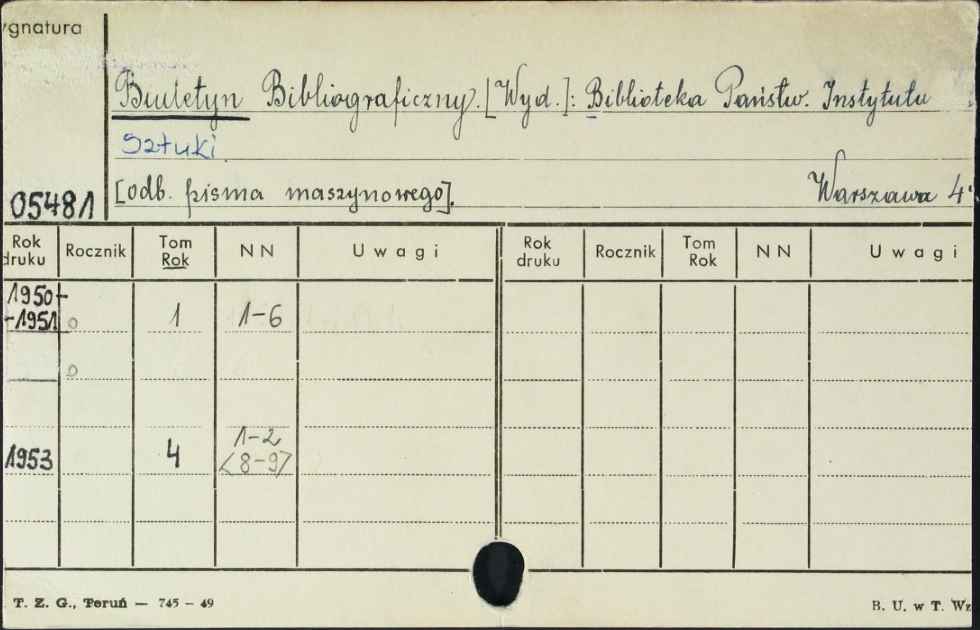 ygnatura
Biuletyn Bibliograficzny. [Wyd.]: Biblioteka Państw. Instytutu
Sztuki
05481 [odb. pisma maszynowego]. Warszawa 4°
Rok druku Rocznik Tom Rok NN Uwagi Rok druku Rocznik Tom Rok NN Uwagi
1950-
-1951 0 1 1-6
0
1953 4 1-2
<8-9>
T. Z. G., Toruń — 745 - 49 B. U. w T. Wz